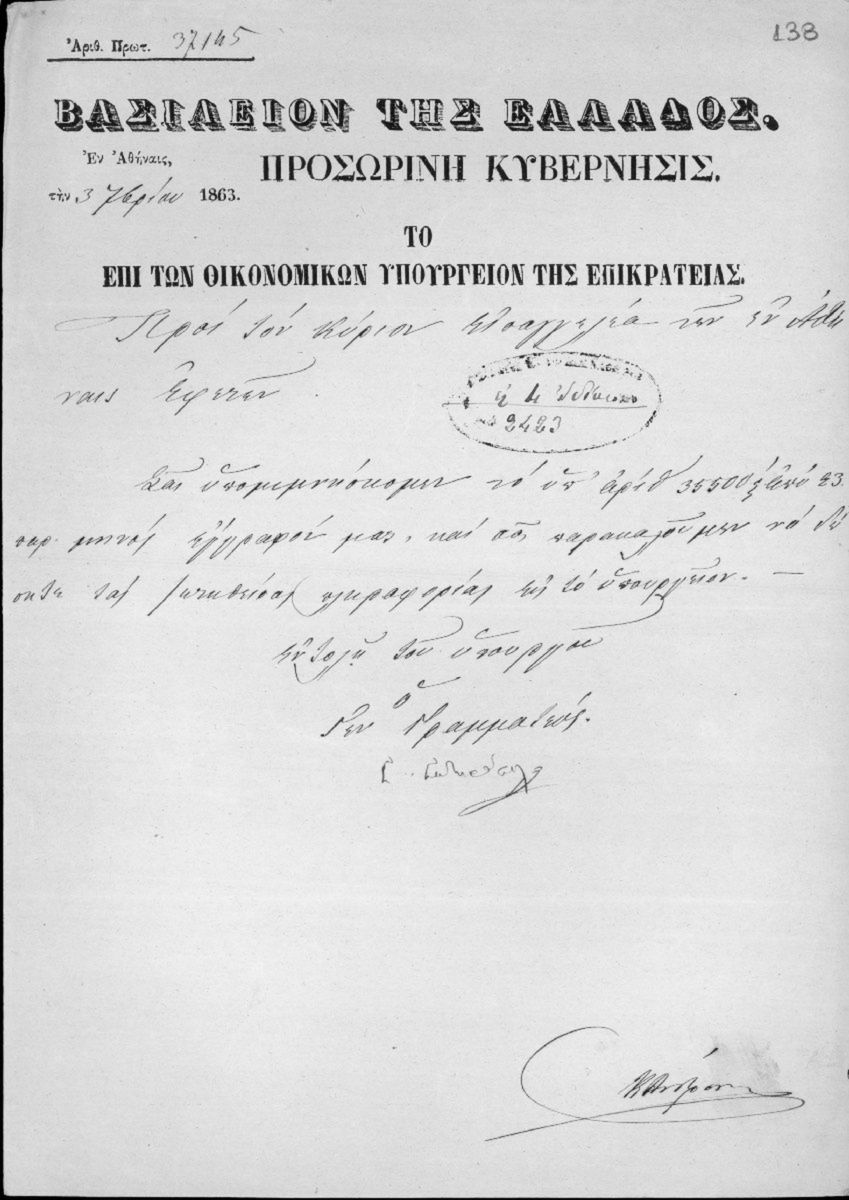 138
Ἀριθ. Πρωτ. 37145
ΒΑΣΙΛΕΙΟΝ ΤΗΣ ΕΛΛΑΔΟΣ.
Ἐν Ἀθήναις,
ΠΡΟΣΩΡΙΝΗ ΚΥΒΕΡΝΗΣΙΣ.
τὴν 3 7βρίου 1863.
ΤΟ
ΕΠΙ ΤΩΝ ΟΙΚΟΝΟΜΙΚΩΝ ΥΠΟΥΡΓΕΙΟΝ ΤΗΣ ΕΠΙΚΡΑΤΕΙΑΣ.
Πρὸς τὸν Κύριον Εἰσαγγελέα τῶν ἐν Ἀθή
ναις Ἐφετῶν
2423
Σᾶς ὑπομιμνήσκομεν τὸ ὑπ' ἀριθ 35500 ἀπὸ 23
παρ. μηνὸς ἔγγραφόν μας, καὶ σᾶς παρακαλοῦμεν νὰ δώ
σητε τὰς ζητηθείσας πληροφορίας εἰς τὸ Ὑπουργεῖον. —
Ἐντολῇ τοῦ Ὑπουργοῦ
ὁ
Γεν Γραμματεύς.